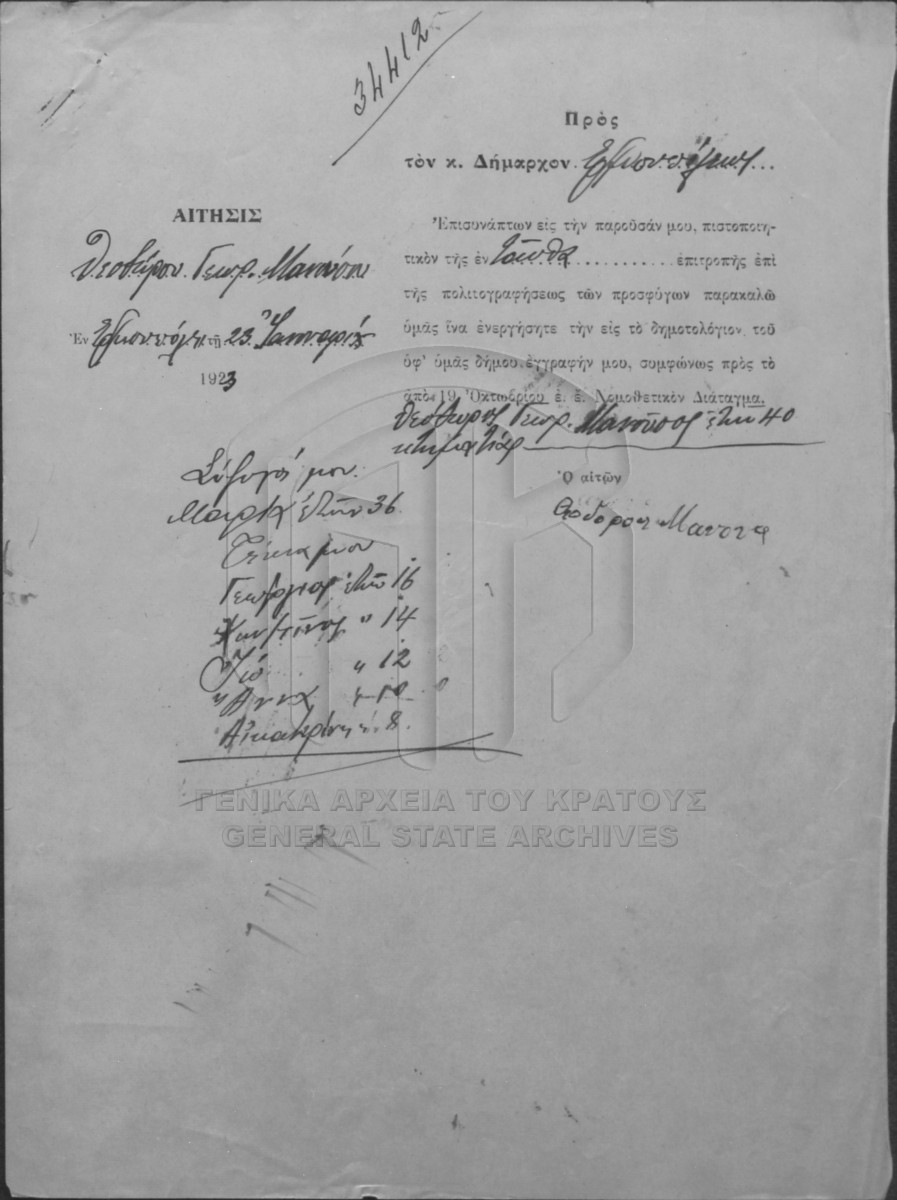 34412
Πρὸς
τὸν κ. Δήμαρχον. Ἑρμουπόλεως...
ΑΙΤΗΣΙΣ
Θεοδώρου Γεωρ. Μανούσου
Ἐν Ἑρμουπόλει τῇ 23 Ἰανουαρίου
1923
Ἐπισυνάπτων εἰς τὴν παροῦσάν μου, πιστοποιη-
τικὸν τῆς ἐν ἐπιτροπῆς ἐπὶ
τῆς πολιτογραφήσεως τῶν προσφύγων παρακαλῶ
ὑμᾶς ἵνα ἐνεργήσητε τὴν εἰς τὸ δημοτολόγιον τοῦ
ὑφ' ὑμᾶς δήμου ἐγγραφήν μου, συμφώνως πρὸς τὸ
ἀπὸ 19 Ὀκτωβρίου ἐ. ἔ. Νομοθετικὸν Διάταγμα.
Θεόδωρος Γεωρ. Μανοῦσος ἐτῶν 40
κτηματίας
Ὁ αἰτῶν
Σύζυγός μου
Μαρία ἐτῶν 36
Τέκνα μου
Γεώργιος ἐτῶν 16
Κωνσταντῖνος " 14
" 12
Ἄννα " 10
Αἰκατερίνη " 8
ΓΕΝΙΚΑ ΑΡΧΕΙΑ ΤΟΥ ΚΡΑΤΟΥΣ
GENERAL STATE ARCHIVES